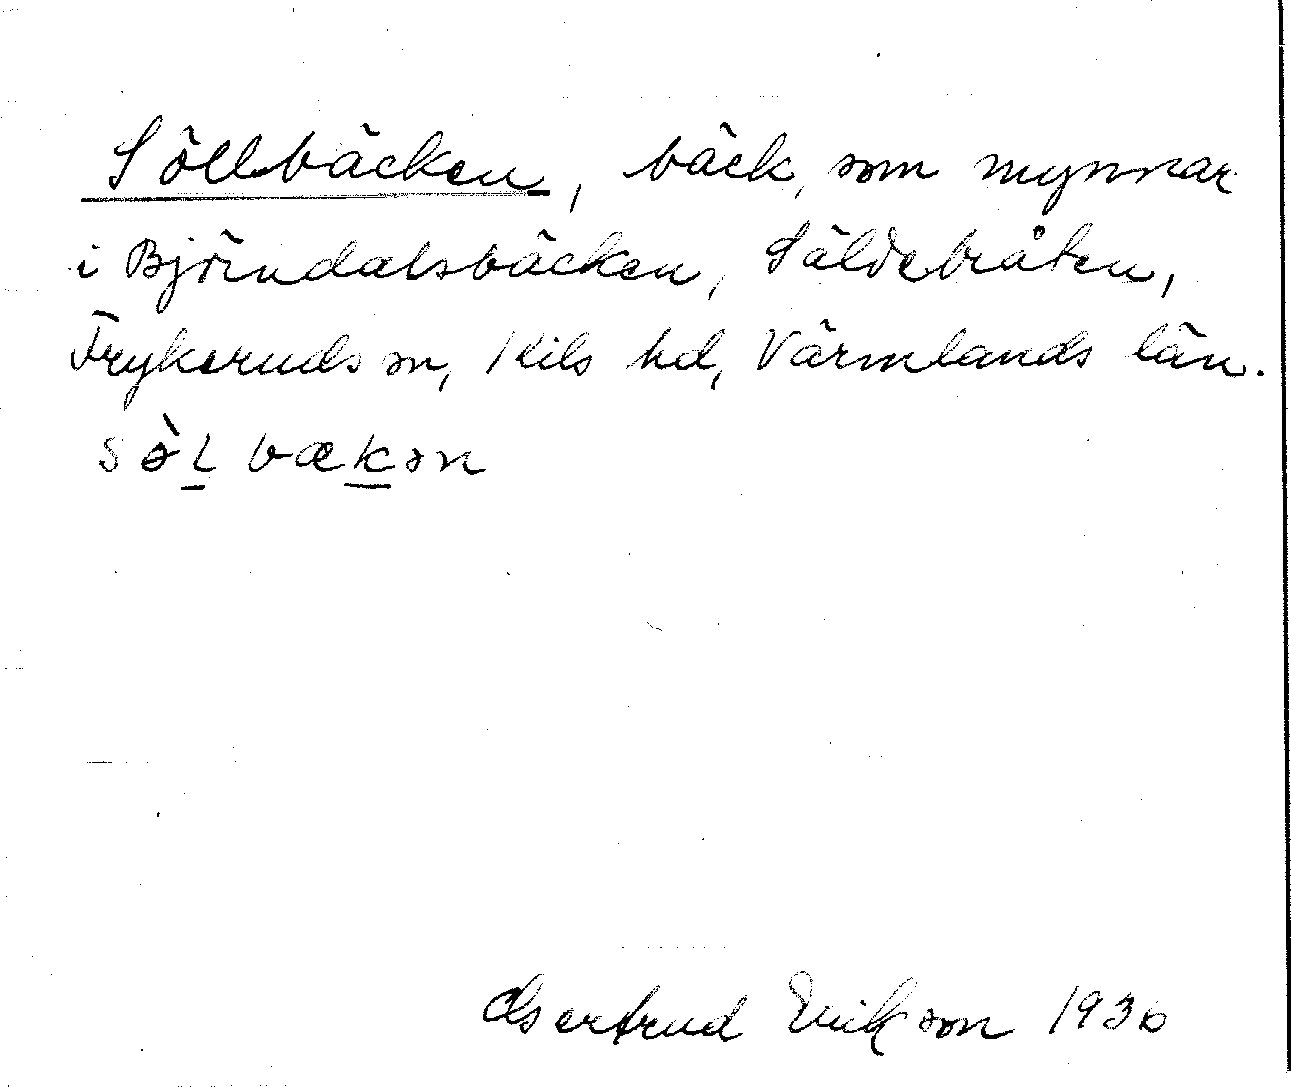 Söllbäcken, bäck, som mynnar
i Björndalsbäcken, Säldebråten,
Frykeruds sn, Kils hd, Värmlands län.
sø̀l bækən
Gertrud Erikson 1936